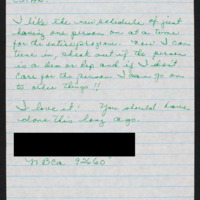 I like the new schedule of just
having one person on at a time
for the entire program. Now I can
tune in, check out if the person
is a dear or dip and if I don't
care for the person I can go on
to other things!!
I love it! You should have
done this long ago.
N.B. Ca. 92660